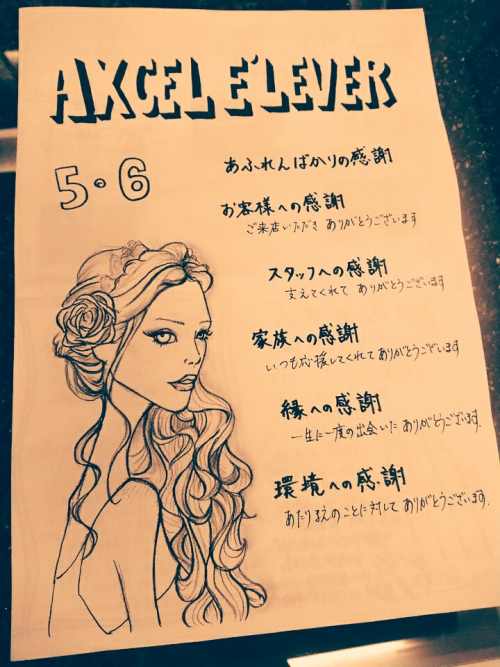 AXCEL E'LEVER
5・6
あふれんばかりの感謝
お客様への感謝
ご来店いただき ありがとうございます
スタッフへの感謝
支えてくれて ありがとうございます
家族への感謝
いつも応援してくれて ありがとうございます
縁への感謝
一生に一度の出会いに ありがとうございます.
環境への感謝
あたりまえのことに対して ありがとうございます.